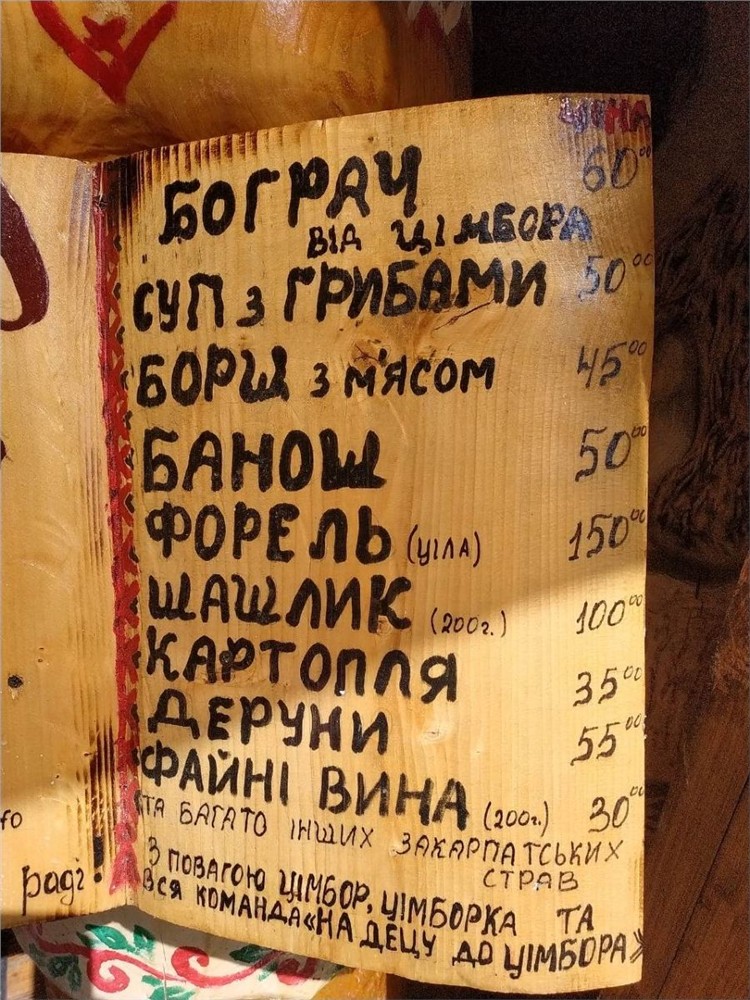 ЦІНА
БОГРАЧ 60⁰⁰
ВІД ЦІМБОРА
СУП З ГРИБАМИ 50⁰⁰
БОРЩ З М'ЯСОМ 45⁰⁰
БАНОШ 50⁰⁰
ФОРЕЛЬ (ЦІЛА) 150⁰⁰
ШАШЛИК (200г.) 100⁰⁰
КАРТОПЛЯ 35⁰⁰
ДЕРУНИ 55⁰⁰
ФАЙНІ ВИНА (200г.) 30⁰⁰
ТА БАГАТО ІНШИХ ЗАКАРПАТСЬКИХ
СТРАВ
З ПОВАГОЮ ЦІМБОР, ЦІМБОРКА ТА
ВСЯ КОМАНДА «НА ДЕЦУ ДО ЦІМБОРА»
раді!